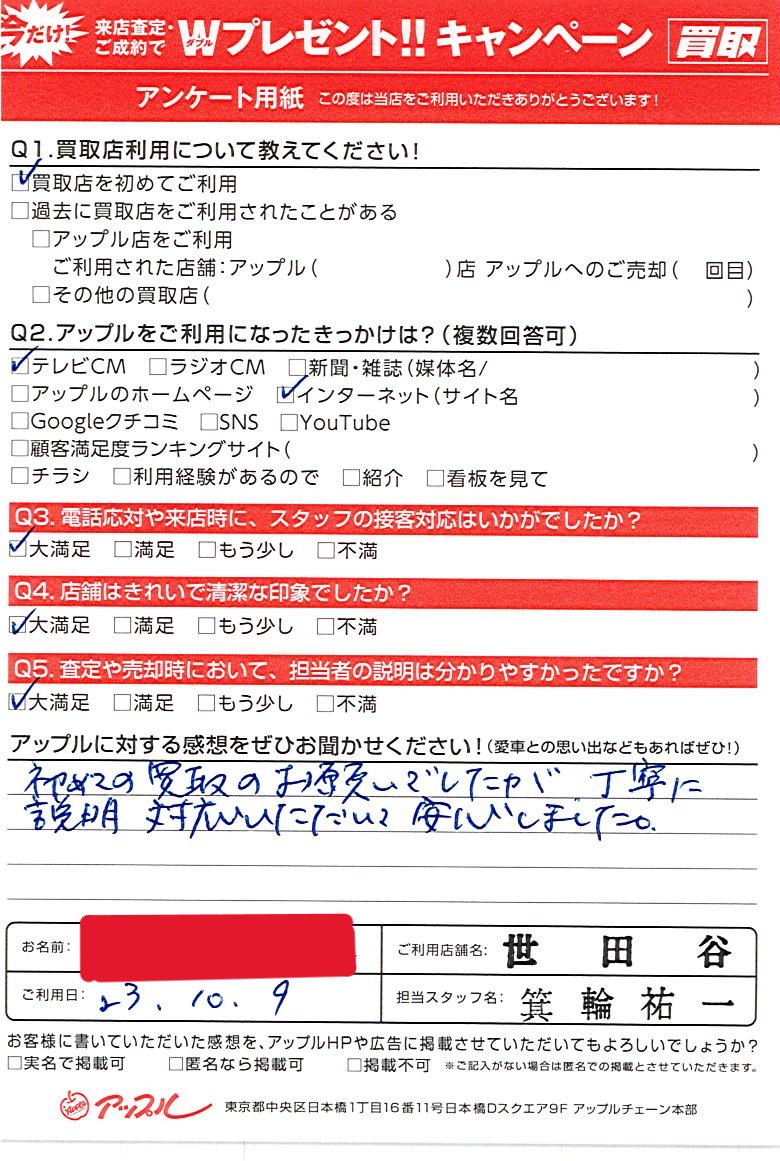 今だけ! 来店査定・ご成約で Wダブルプレゼント!! キャンペーン 買取
アンケート用紙 この度は当店をご利用いただきありがとうございます!
Q1.買取店利用について教えてください!
☑買取店を初めてご利用
□過去に買取店をご利用されたことがある
□アップル店をご利用
ご利用された店舗:アップル( )店 アップルへのご売却( 回目)
□その他の買取店( )
Q2.アップルをご利用になったきっかけは?(複数回答可)
☑テレビCM □ラジオCM □新聞・雑誌(媒体名/ )
□アップルのホームページ ☑インターネット(サイト名 )
□Googleクチコミ □SNS □YouTube
□顧客満足度ランキングサイト( )
□チラシ □利用経験があるので □紹介 □看板を見て
Q3.電話応対や来店時に、スタッフの接客対応はいかがでしたか?
☑大満足 □満足 □もう少し □不満
Q4.店舗はきれいで清潔な印象でしたか?
☑大満足 □満足 □もう少し □不満
Q5.査定や売却時において、担当者の説明は分かりやすかったですか?
☑大満足 □満足 □もう少し □不満
アップルに対する感想をぜひお聞かせください!(愛車との思い出などもあればぜひ!)
初めての買取のお願いでしたが、丁寧に
説明 対応いただいて 安心しました。
お名前: ご利用店舗名: 世田谷
ご利用日: 23.10.9 担当スタッフ名: 箕輪祐一
お客様に書いていただいた感想を、アップルHPや広告に掲載させていただいてもよろしいでしょうか?
□実名で掲載可 □匿名なら掲載可 □掲載不可 ※ご記入がない場合は匿名での掲載とさせていただきます。
アップル 東京都中央区日本橋1丁目16番11号日本橋Dスクエア9F アップルチェーン本部